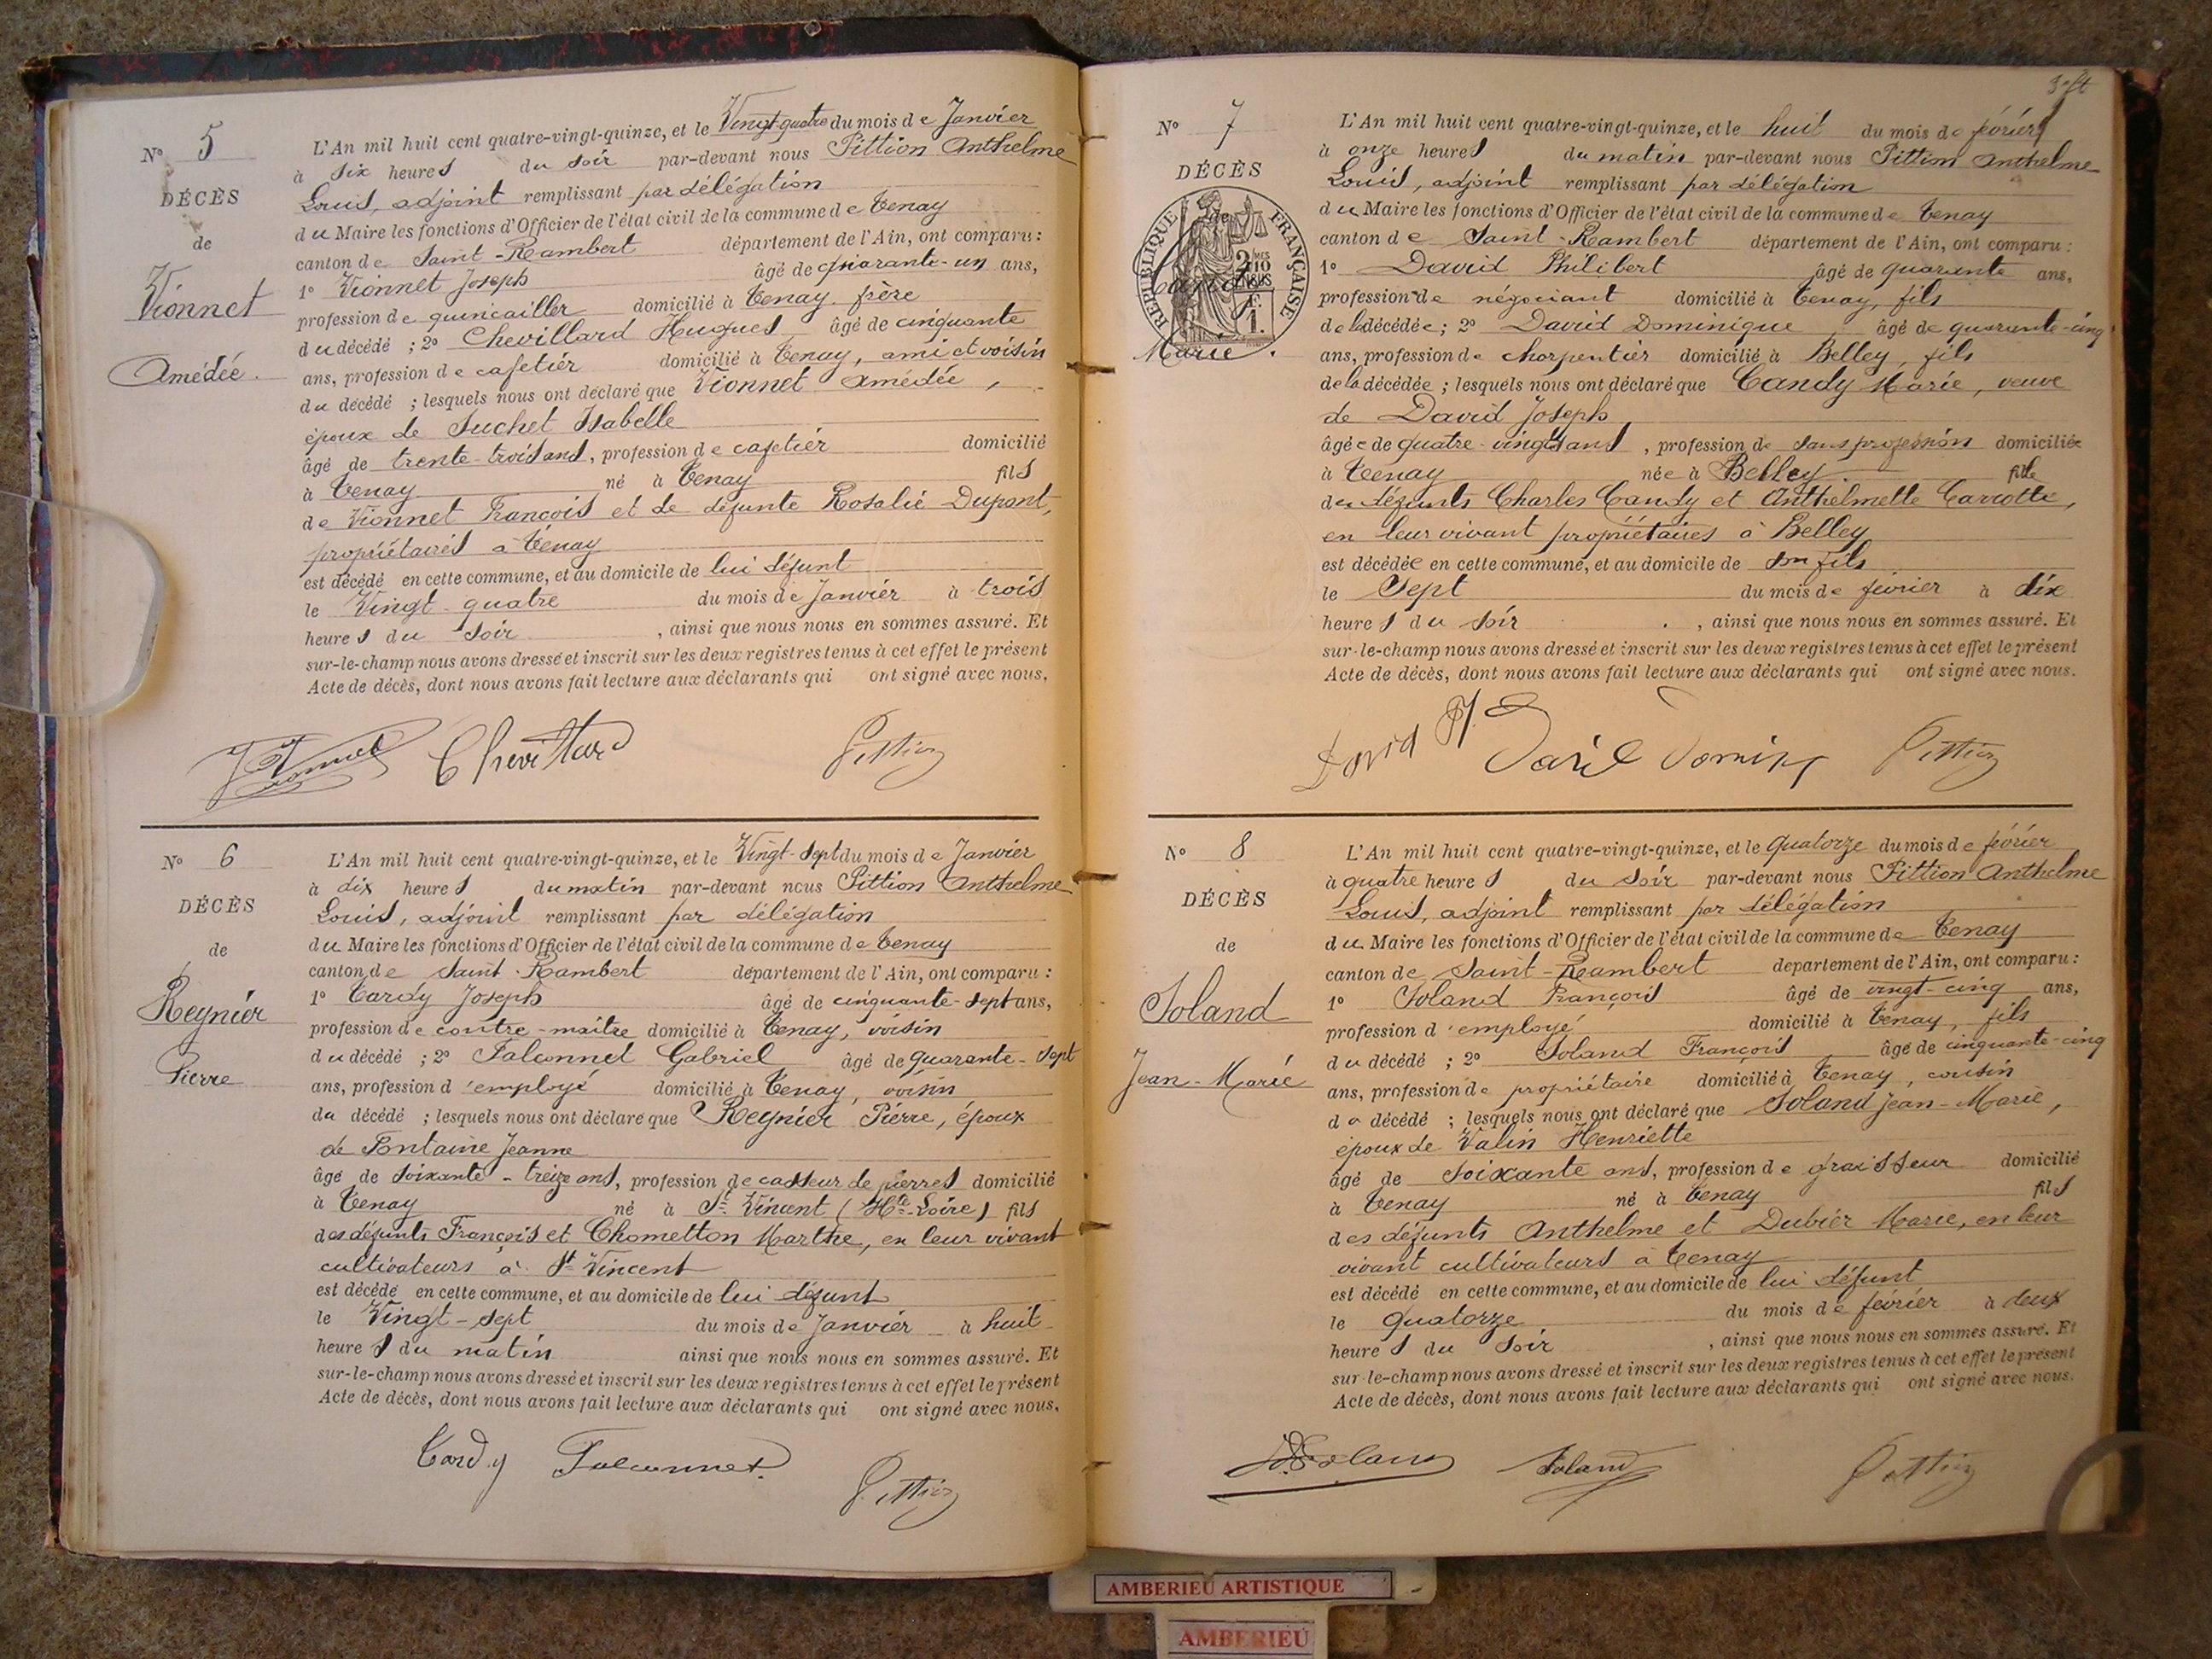 N° 5
DÉCÈS
de
Vionnet
Amédée.
L'An mil huit cent quatre-vingt-quinze, et le Vingt-quatre du mois de Janvier
à six heures du soir par-devant nous Pittion Anthelme
Louis, adjoint remplissant par délégation
du Maire les fonctions d'Officier de l'état civil de la commune de Tenay
canton de Saint-Rambert département de l'Ain, ont comparu :
1° Vionnet Joseph âgé de quarante-un ans,
profession de quincailler domicilié à Tenay, frère
du décédé ; 2° Chevillard Hugues âgé de cinquante
ans, profession de cafetier domicilié à Tenay, ami et voisin
du décédé ; lesquels nous ont déclaré que Vionnet Amédée,
époux de Suchet Isabelle
âgé de trente-trois ans, profession de cafetier domicilié
à Tenay né à Tenay fils
de Vionnet François et de défunte Rosalie Dupont,
propriétaires à Tenay
est décédé en cette commune, et au domicile de lui défunt
le Vingt-quatre du mois de Janvier à trois
heures du soir, ainsi que nous nous en sommes assuré. Et
sur-le-champ nous avons dressé et inscrit sur les deux registres tenus à cet effet le présent
Acte de décès, dont nous avons fait lecture aux déclarants qui ont signé avec nous.
Chevillard Pittion
N° 6
DÉCÈS
de
Reynier
Pierre
L'An mil huit cent quatre-vingt-quinze, et le Vingt-sept du mois de Janvier
à dix heures du matin par-devant nous Pittion Anthelme
Louis, adjoint remplissant par délégation
du Maire les fonctions d'Officier de l'état civil de la commune de Tenay
canton de Saint-Rambert département de l'Ain, ont comparu :
1° Tardy Joseph âgé de cinquante-sept ans,
profession de contre-maître domicilié à Tenay, voisin
du décédé ; 2° Falconnet Gabriel âgé de quarante-sept
ans, profession d'employé domicilié à Tenay, voisin
du décédé ; lesquels nous ont déclaré que Reynier Pierre, époux
de Fontaine Jeanne
âgé de soixante-treize ans, profession de casseur de pierres domicilié
à Tenay né à St Vincent (Hte-Loire) fils
des défunts François et Chometton Marthe, en leur vivant
cultivateurs à St Vincent
est décédé en cette commune, et au domicile de lui défunt
le Vingt-sept du mois de Janvier à huit
heures du matin ainsi que nous nous en sommes assuré. Et
sur-le-champ nous avons dressé et inscrit sur les deux registres tenus à cet effet le présent
Acte de décès, dont nous avons fait lecture aux déclarants qui ont signé avec nous.
Tardy Falconnet
Pittion
N° 7
DÉCÈS
de
RÉPUBLIQUE FRANÇAISE
Candy
Marie.
L'An mil huit cent quatre-vingt-quinze, et le huit du mois de février
à onze heures du matin par-devant nous Pittion Anthelme
Louis, adjoint remplissant par délégation
du Maire les fonctions d'Officier de l'état civil de la commune de Tenay
canton de Saint-Rambert département de l'Ain, ont comparu :
1° David Philibert âgé de quarante ans,
profession de négociant domicilié à Tenay, fils
de la décédée ; 2° David Dominique âgé de quarante-cinq
ans, profession de charpentier domicilié à Belley, fils
de la décédée ; lesquels nous ont déclaré que Candy Marie, veuve
de David Joseph
âgée de quatre-vingts ans, profession de sans profession domiciliée
à Tenay née à Belley fille
des défunts Charles Candy et Anthelmette Carrotte,
en leur vivant propriétaires à Belley
est décédée en cette commune, et au domicile de son fils
le Sept du mois de février à dix
heures du soir, ainsi que nous nous en sommes assuré. Et
sur-le-champ nous avons dressé et inscrit sur les deux registres tenus à cet effet le présent
Acte de décès, dont nous avons fait lecture aux déclarants qui ont signé avec nous.
David Ph David Pittion
N° 8
DÉCÈS
de
Soland
Jean-Marie
L'An mil huit cent quatre-vingt-quinze, et le quatorze du mois de février
à quatre heures du soir par-devant nous Pittion Anthelme
Louis, adjoint remplissant par délégation
du Maire les fonctions d'Officier de l'état civil de la commune de Tenay
canton de Saint-Rambert département de l'Ain, ont comparu :
1° Soland François âgé de vingt-cinq ans,
profession d'employé domicilié à Tenay, fils
du décédé ; 2° Soland François âgé de cinquante-cinq
ans, profession de propriétaire domicilié à Tenay, cousin
du décédé ; lesquels nous ont déclaré que Soland Jean-Marie,
époux de Valin Henriette
âgé de soixante ans, profession de graisseur domicilié
à Tenay né à Tenay fils
des défunts Anthelme et Dubier Marie, en leur
vivant cultivateurs à Tenay
est décédé en cette commune, et au domicile de lui défunt
le quatorze du mois de février à deux
heures du soir, ainsi que nous nous en sommes assuré. Et
sur-le-champ nous avons dressé et inscrit sur les deux registres tenus à cet effet le présent
Acte de décès, dont nous avons fait lecture aux déclarants qui ont signé avec nous.
Soland Soland Pittion
AMBERIEU ARTISTIQUE
AMBERIEU